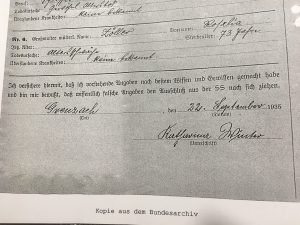 Todesursache:
Überstandene Krankheiten: keine bekannt
Nr. 6. Großmutter mütterl. Name: Zöller Vorname: Rosalia
Jetz. Alter: Sterbealter: 73 Jahre
Todesursache: Altersschwäche
Überstandene Krankheiten: keine bekannt
Ich versichere hiermit, daß ich vorstehende Angaben nach bestem Wissen und Gewissen gemacht habe
und bin mir bewußt, daß wissentlich falsche Angaben den Ausschluß aus der SS nach sich ziehen.
Grenzach, den 22. September 1935
(Ort) (Datum)
Katharina Winter
(Unterschrift)
Kopie aus dem Bundesarchiv